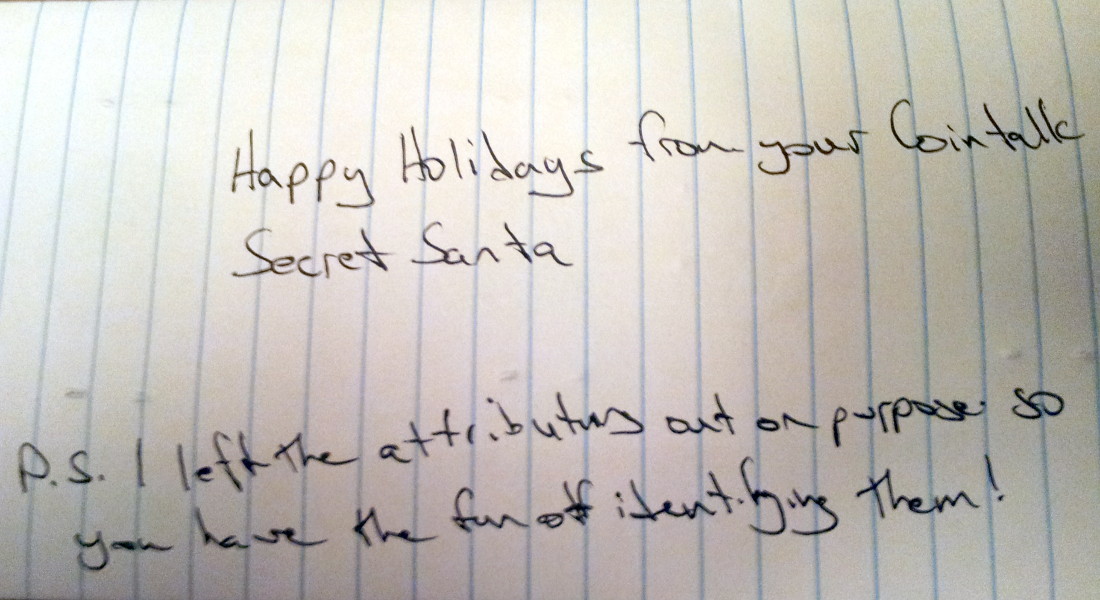 Happy Holidays from your Cointalk
Secret Santa
P.S. I left the attributions out on purpose so
you have the fun of identifying them!